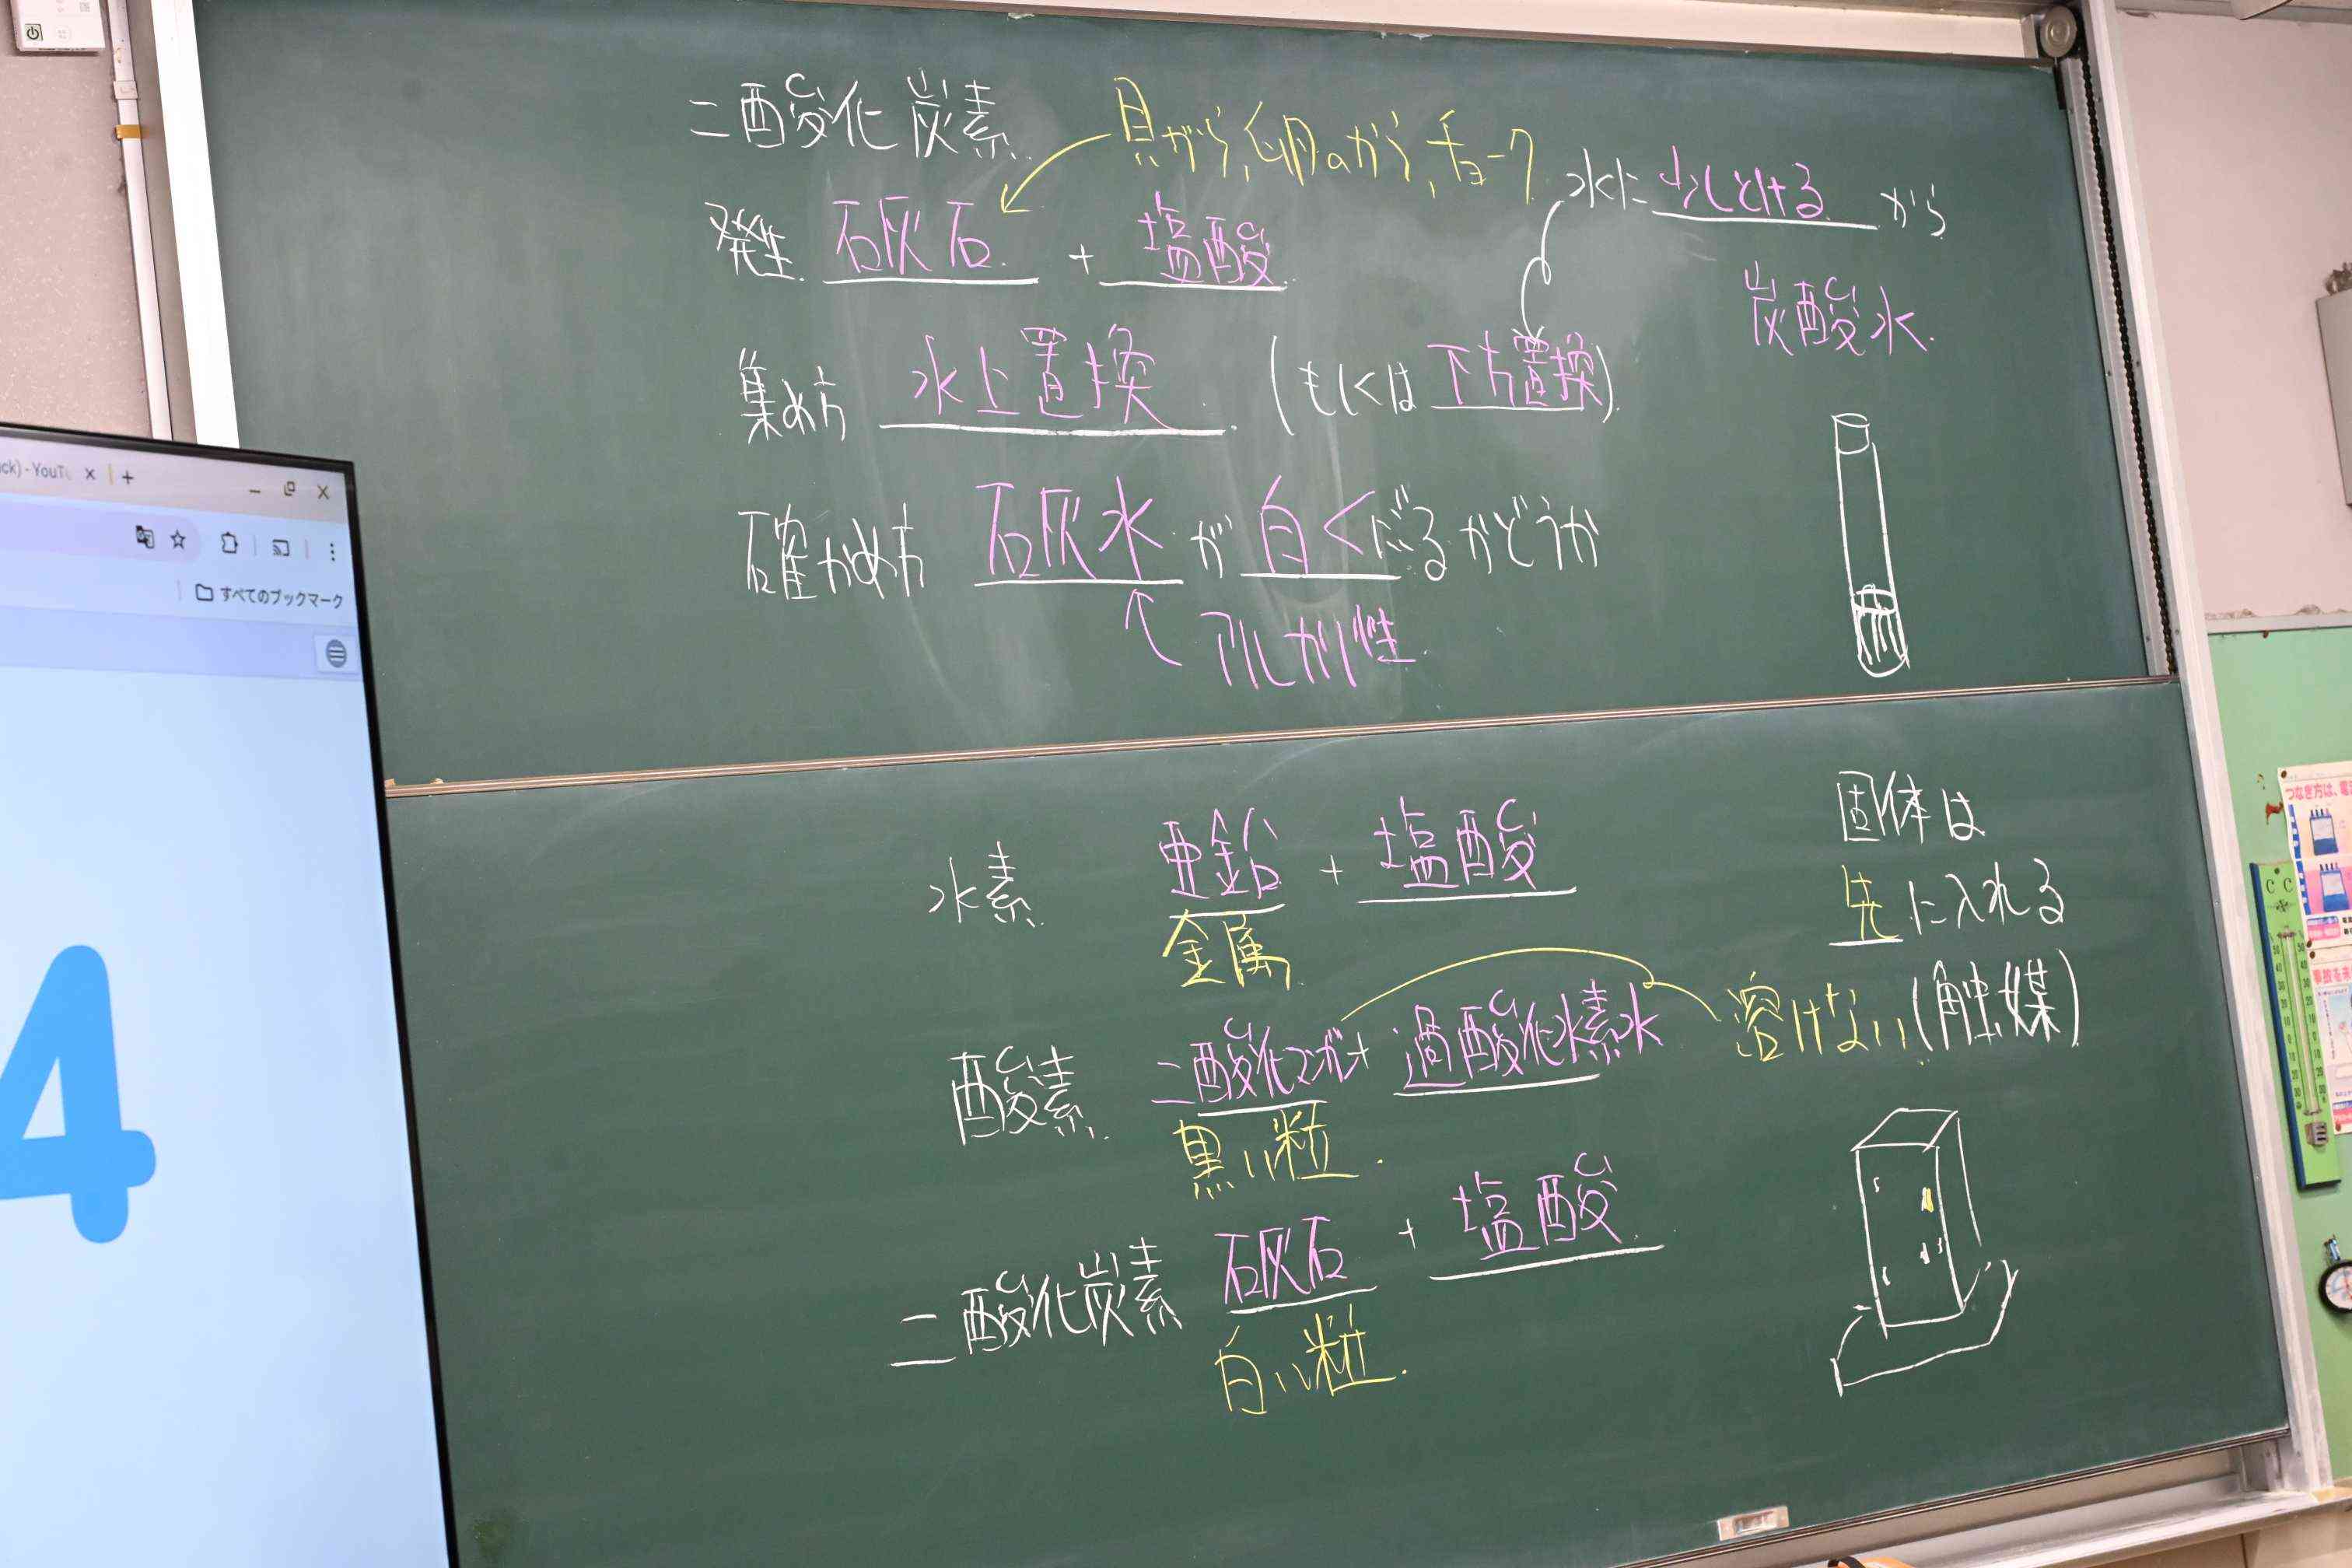 二酸化炭素
貝がら,卵のから,チョーク
発生 石灰石 + 塩酸
水に少しとける から
炭酸水
集め方 水上置換 (もしくは下方置換)
確かめ方 石灰水 が 白くにごるかどうか
アルカリ性
水素 亜鉛 + 塩酸
金属
固体は
先に入れる
酸素 二酸化マンガン + 過酸化水素水
溶けない(触媒)
黒い粒
二酸化炭素 石灰石 + 塩酸
白い粒
ck) - YouTu
すべてのブックマーク
4
つなぎ方は、電
C C